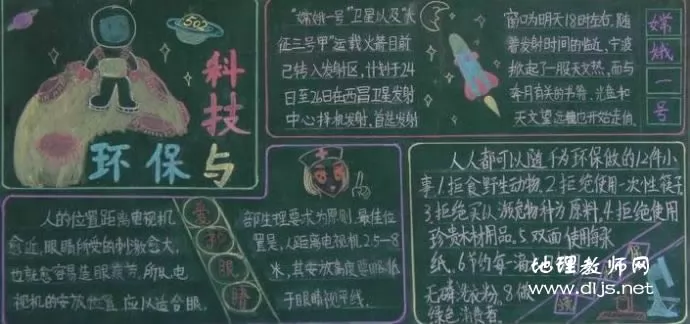 502
科技
与
环保
"嫦娥一号"卫星以及"长
征三号甲"运载火箭目前
己转入发射区，计划于24
日至26日在西昌卫星发射
中心择机发射，首选发射
窗口为明天18时左右，随
着发射时间的临近，宁波
掀起了一股天文热，而与
奔月有关的书籍、光盘和
天文望远镜也开始走俏。
嫦
娥
一
号
人的位置距离电视机
愈近，眼睛所受的刺激愈大，
也就愈容易造眼疲劳，所以电
视机的安放位置，应以适合眼
爱
护
眼
睛
部生理要求为原则，最佳位
置是，人距离电视机2.5—8
米，其安放高度要
于眼睛视平线。
人人都可以随
为环保做的12件小
事1.拒食野生动物.2.拒绝使用一次性筷子
3.拒绝买以濒危物种为原料，4.拒绝使用
珍贵木材用品.5.双面使用
纸.6.节约每一滴
无磷洗衣粉.8.做
绿色消费者
地理教师网
www.dljs.net